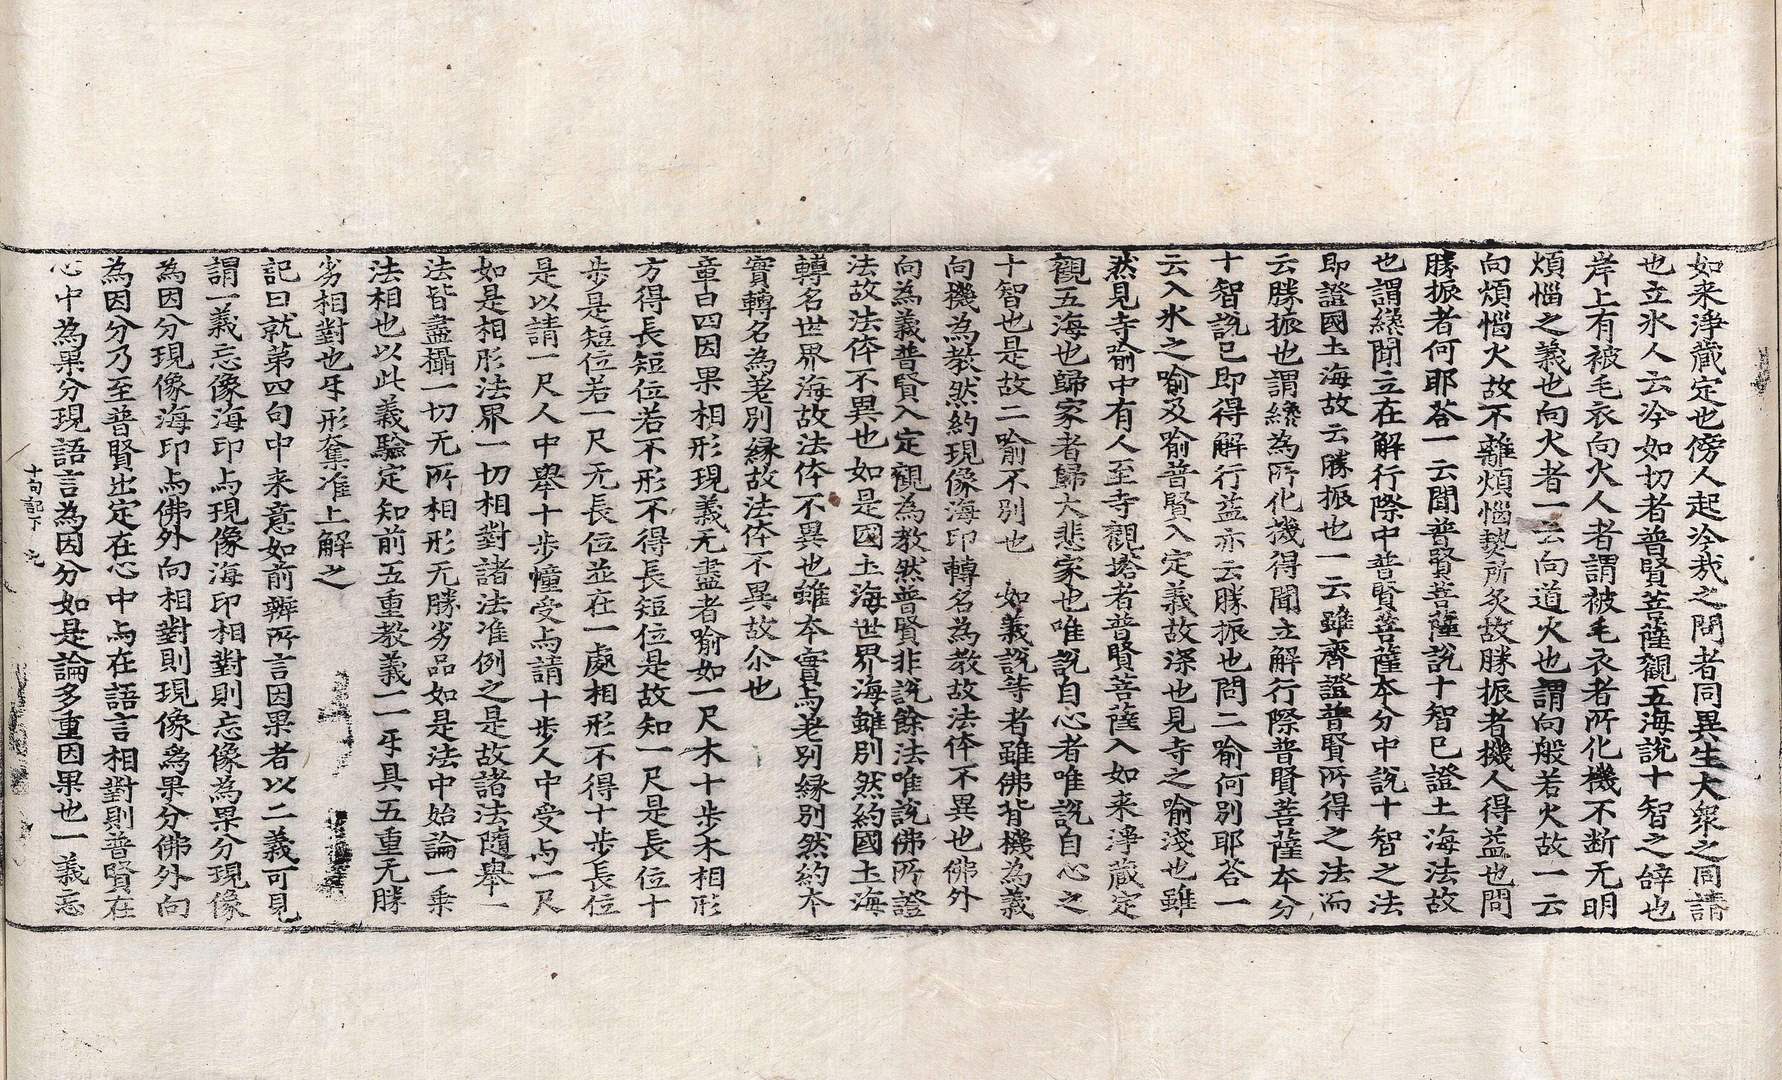 如来淨藏定也傍人起冷哉之問者同異生大衆之同請
也立氷人云冷如切者普賢菩薩觀五海說十智之辞也
岸上有被毛衣向火人者謂被毛衣者所化機不断无明
煩惱之義也向火者一云向道火也謂向般若火故一云
向煩惱火故不離煩惱𤍠所炙故勝振者機人得益也問
勝振者何耶荅一云聞普賢菩薩說十智已證土海法故
也謂纔聞立在解行際中普賢菩薩本分中說十智之法
即證國土海故云勝振也一云雖齊證普賢所得之法而
云勝振也謂纔為所化機得聞立解行際普賢菩薩本分
十智說已即得解行益亦云勝振也問二喻何別耶荅一
云入氷之喻及喻普賢入定義故深也見寺之喻淺也雖
然見寺喻中有人至寺觀塔者普賢菩薩入如来淨藏定
觀五海也歸家者歸大悲家也唯說自心者唯說自心之
十智也是故二喻不別也　如義說等者雖佛背機為義
向機為教然約現像海印轉名為教故法体不異也佛外
向為義普賢入定觀為教然普賢非說餘法唯說佛所證
法故法体不異也如是國土海世界海雖別然約國土海
轉名世界海故法体不異也雖本實与差別緣別然約本
實轉名為差別緣故法体不異故尒也
章曰四因果相形現義无盡者喻如一尺木十步木相形
方得長短位若不形不得長短位是故知一尺是長位十
步是短位若一尺无長位並在一處相形不得十步長位
是以請一尺人中舉十步幢受与請十步人中受与一尺
如是相形法界一切相對諸法准例之是故諸法隨舉一
法皆盡攝一切无所相形无勝劣品如是法中始論一乗
法相也以此義驗定知前五重教義一一㸦具五重无勝
劣相對也㸦形奪准上解之
記曰就第四句中来意如前辨所言因果者以二義可見
謂一義忘像海印与現像海印相對則忘像為果分現像
為因分現像海印与佛外向相對則現像爲果分佛外向
為因分乃至普賢出定在心中与在語言相對則普賢在
心中為果分現語言為因分如是論多重因果也一義忘
十句記下